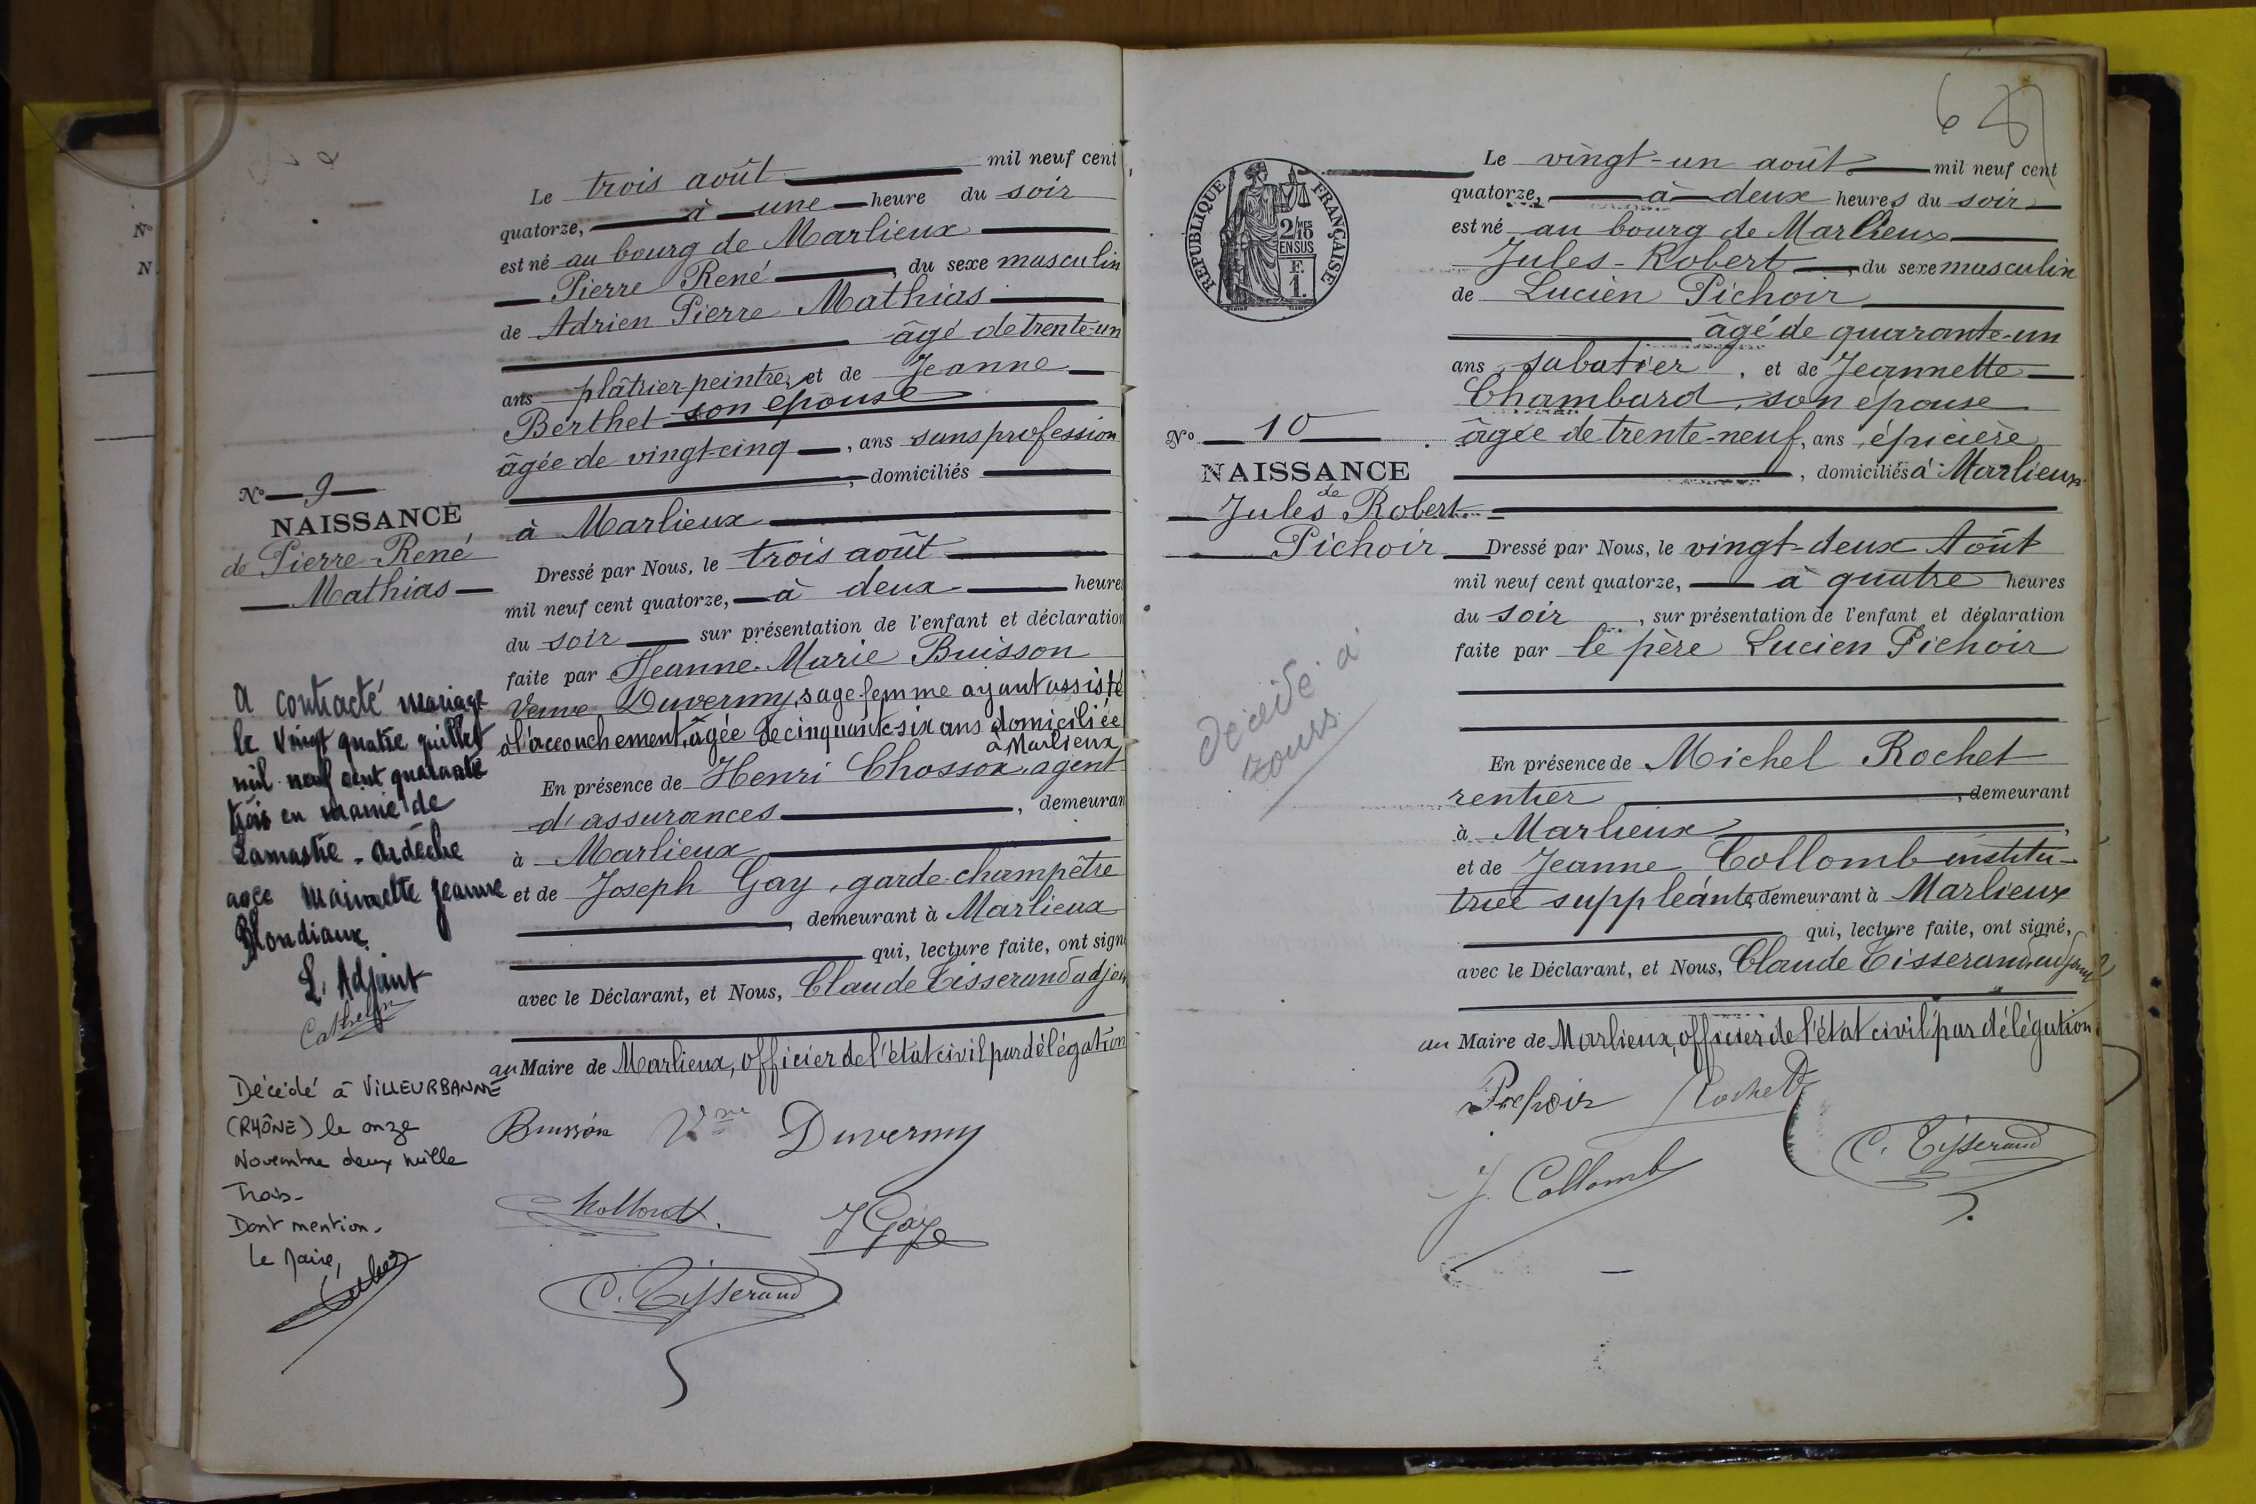 Le trois août mil neuf cent
quatorze, à une heure du soir
est né au bourg de Marlieux
Pierre René, du sexe masculin
de Adrien Pierre Mathias
âgé de trente-un
ans plâtrier-peintre, et de Jeanne
Berthet son épouse
âgée de vingt-cinq, ans sans profession
, domiciliés
à Marlieux
Dressé par Nous, le trois août
mil neuf cent quatorze, à deux heures
du soir sur présentation de l'enfant et déclaration
faite par Jeanne-Marie Buisson
Veuve Duvernay, sage femme ayant assisté
à l'accouchement, âgée de cinquante-six ans domiciliée
à Marlieux
En présence de Henri Chosson, agent
d'assurances, demeurant
à Marlieux
et de Joseph Gay, garde-champêtre
demeurant à Marlieux
qui, lecture faite, ont signé
avec le Déclarant, et Nous, Claude Tisserand adjoint
au Maire de Marlieux, officier de l'état civil par délégation
Buisson Vve Duvernay
J Gay
C. Tisserand
N° 9
NAISSANCE
de Pierre-René
Mathias
A contracté mariage
le vingt quatre juillet
mil neuf cent quarante
trois en mairie de
Lamastre - Ardèche
avec Jeanne
Blondiaux
L'Adjoint
Décédé à VILLEURBANNE
(RHÔNE) le onze
Novembre deux mille
Trois.
Dont mention.
Le Maire,
REPUBLIQUE FRANÇAISE
2/10MES
EN SUS
F.
1.
Le vingt-un août mil neuf cent
quatorze, à deux heures du soir
est né au bourg de Marlieux
Jules-Robert, du sexe masculin
de Lucien Pichoir
âgé de quarante-un
ans sabotier, et de Jeannette
Chambard, son épouse
âgée de trente-neuf, ans épicière
, domiciliés à Marlieux
N° 10
NAISSANCE
de
Jules Robert
Pichoir
Dressé par Nous, le vingt-deux Août
mil neuf cent quatorze, à quatre heures
du soir, sur présentation de l'enfant et déclaration
faite par le père Lucien Pichoir
décédé à
Tours
En présence de Michel Rochet
rentier, demeurant
à Marlieux
et de Jeanne Collomb institu-
trice suppléante, demeurant à Marlieux
qui, lecture faite, ont signé,
avec le Déclarant, et Nous, Claude Tisserand, adjoint
au Maire de Marlieux, officier de l'état civil par délégation
Pichoir Rochet
J. Collomb
C. Tisserand